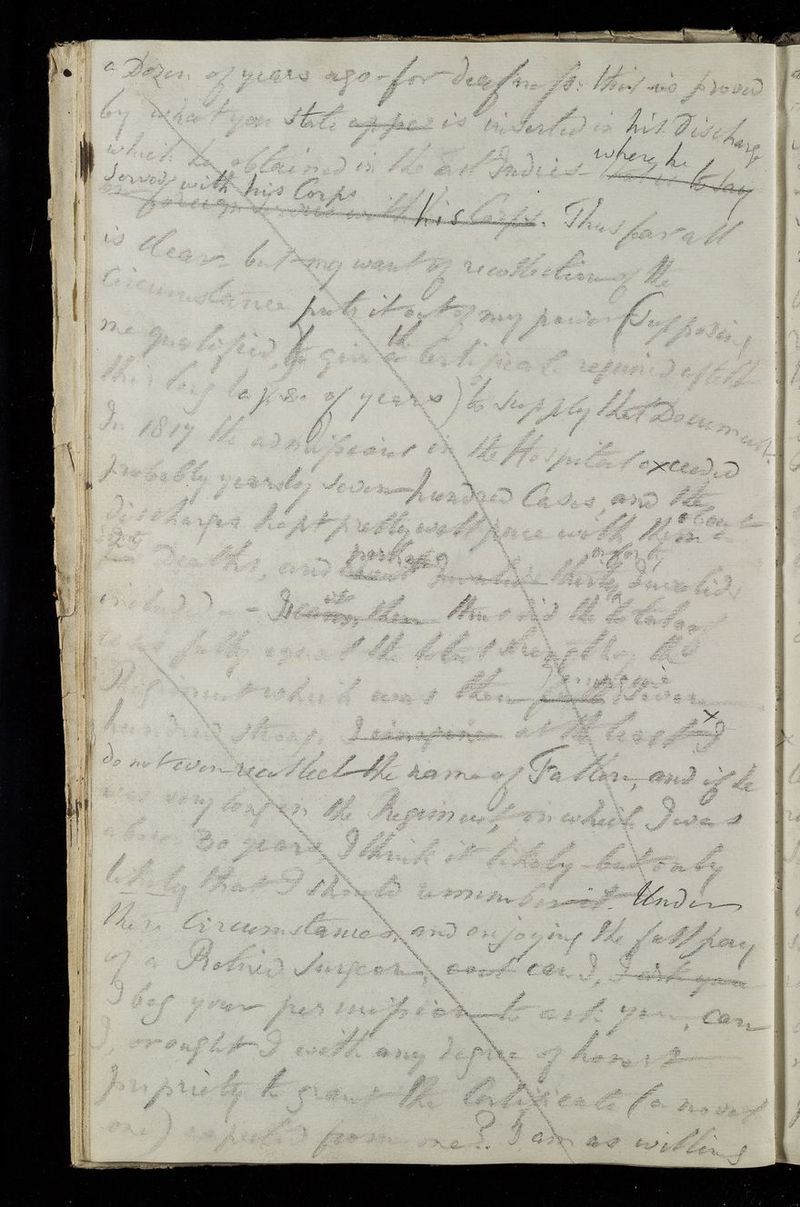 a Dozen of years ago - for deafness: this is proved
by what you state appear is inserted in his Discharge
which he obtained in the East Indies - where he
served with his Corps
on foreign service with his Corps. Thus far all
is clear - but my want of recollection of the
Circumstance puts it out of my power (supposing
me qualified, to give the Certificate required after
this long lapse of years) to supply that Document.
In 1817 the admissions in the Hospital exceeded
probably yearly seven hundred Cases, and the
discharges kept pretty well pace with them - about
Deaths, and perhaps thirty Invalids
included - then the total
was fully equal the total strength of the
Regiment which was then seven
hundred strong, I imagine at the least x I
do not even recollect the name of Fallon, and if he
was very long in the Regiment, in which I was
above 30 years, I think it likely - but only
likely that I should remember it. Under
these Circumstances, and enjoying the full pay
of a Retired Surgeon, can I, I ask you
I beg your permission to ask you, can
I, or ought I with any degree of honest
propriety to grant the Certificate (a novel
one) expected from me? I am as willing